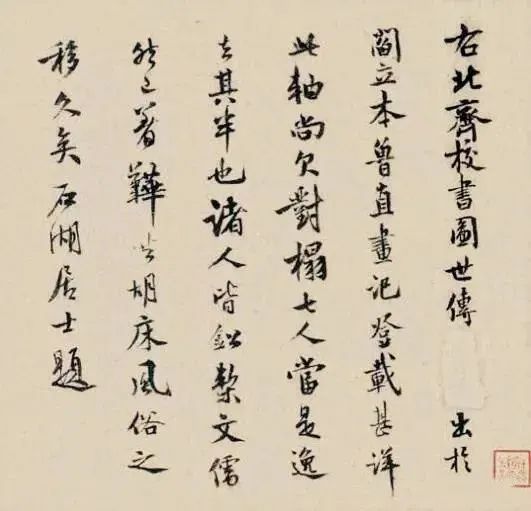 右北齊校書圖世傳 出於
閻立本魯直畫記登載甚詳
此軸尚欠對榻七人當是逸
去其半也諸人皆鈆槧文儒
然已著鞾坐胡床風俗之
移久矣石湖居士題